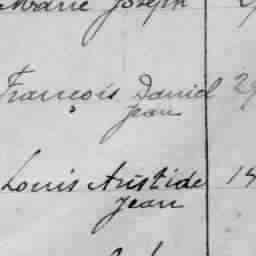 Marie Joseph
François Daniel 29
Jean
Louis Aristide 14
Jean